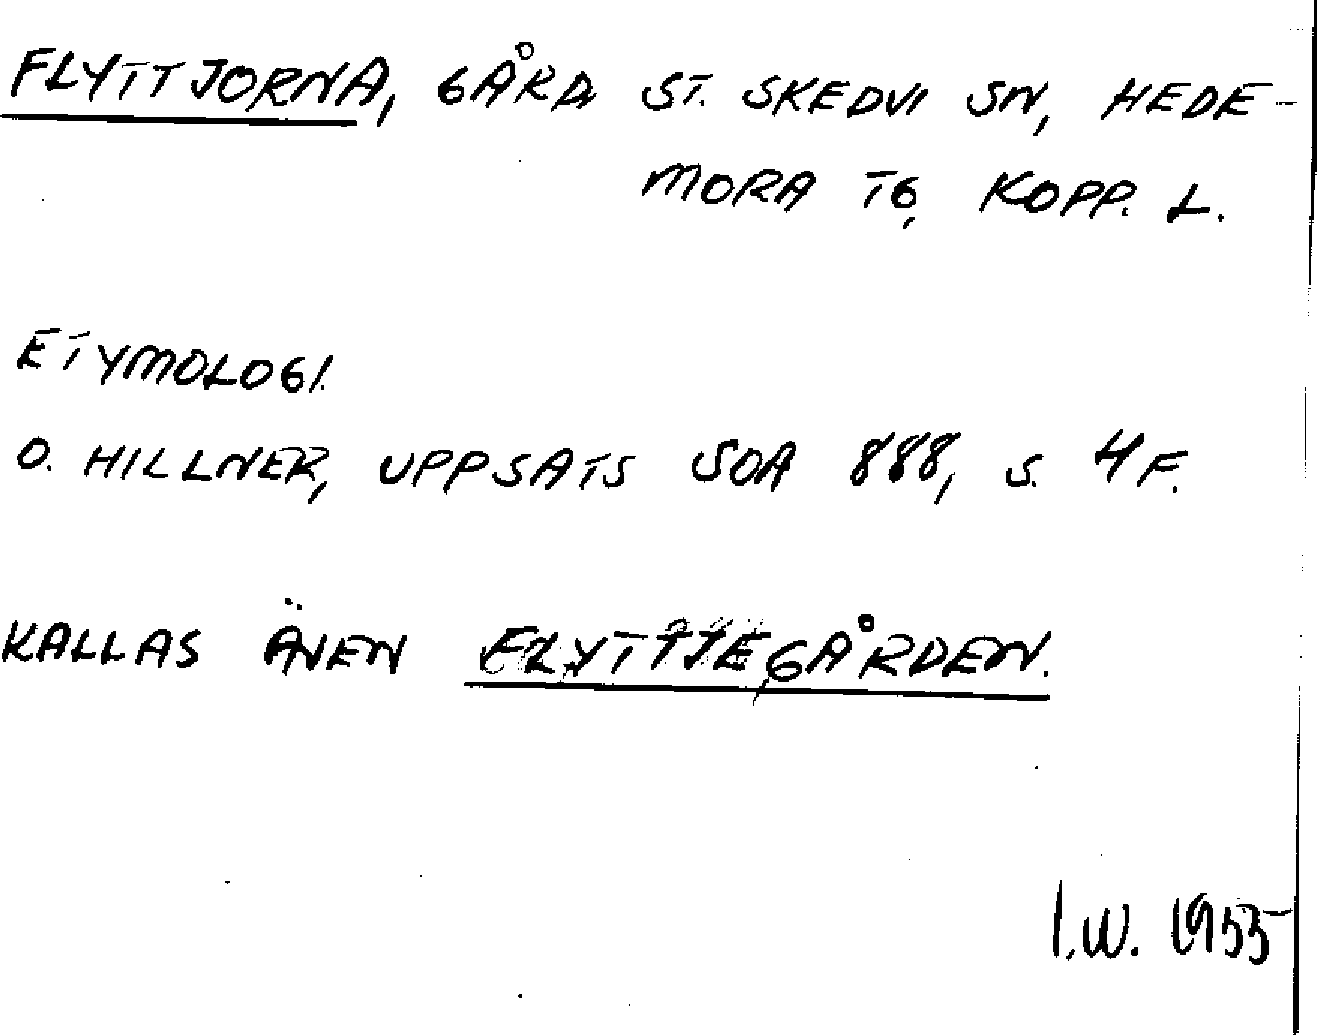 FLYTTJORNA, GÅRD, ST. SKEDVI SN, HEDE-
MORA TG, KOPP. L.
ETYMOLOGI.
O. HILLNER, UPPSATS SOA 888, S. 4 F.
KALLAS ÄVEN FLYTTJEGÅRDEN.
I.W. 1955